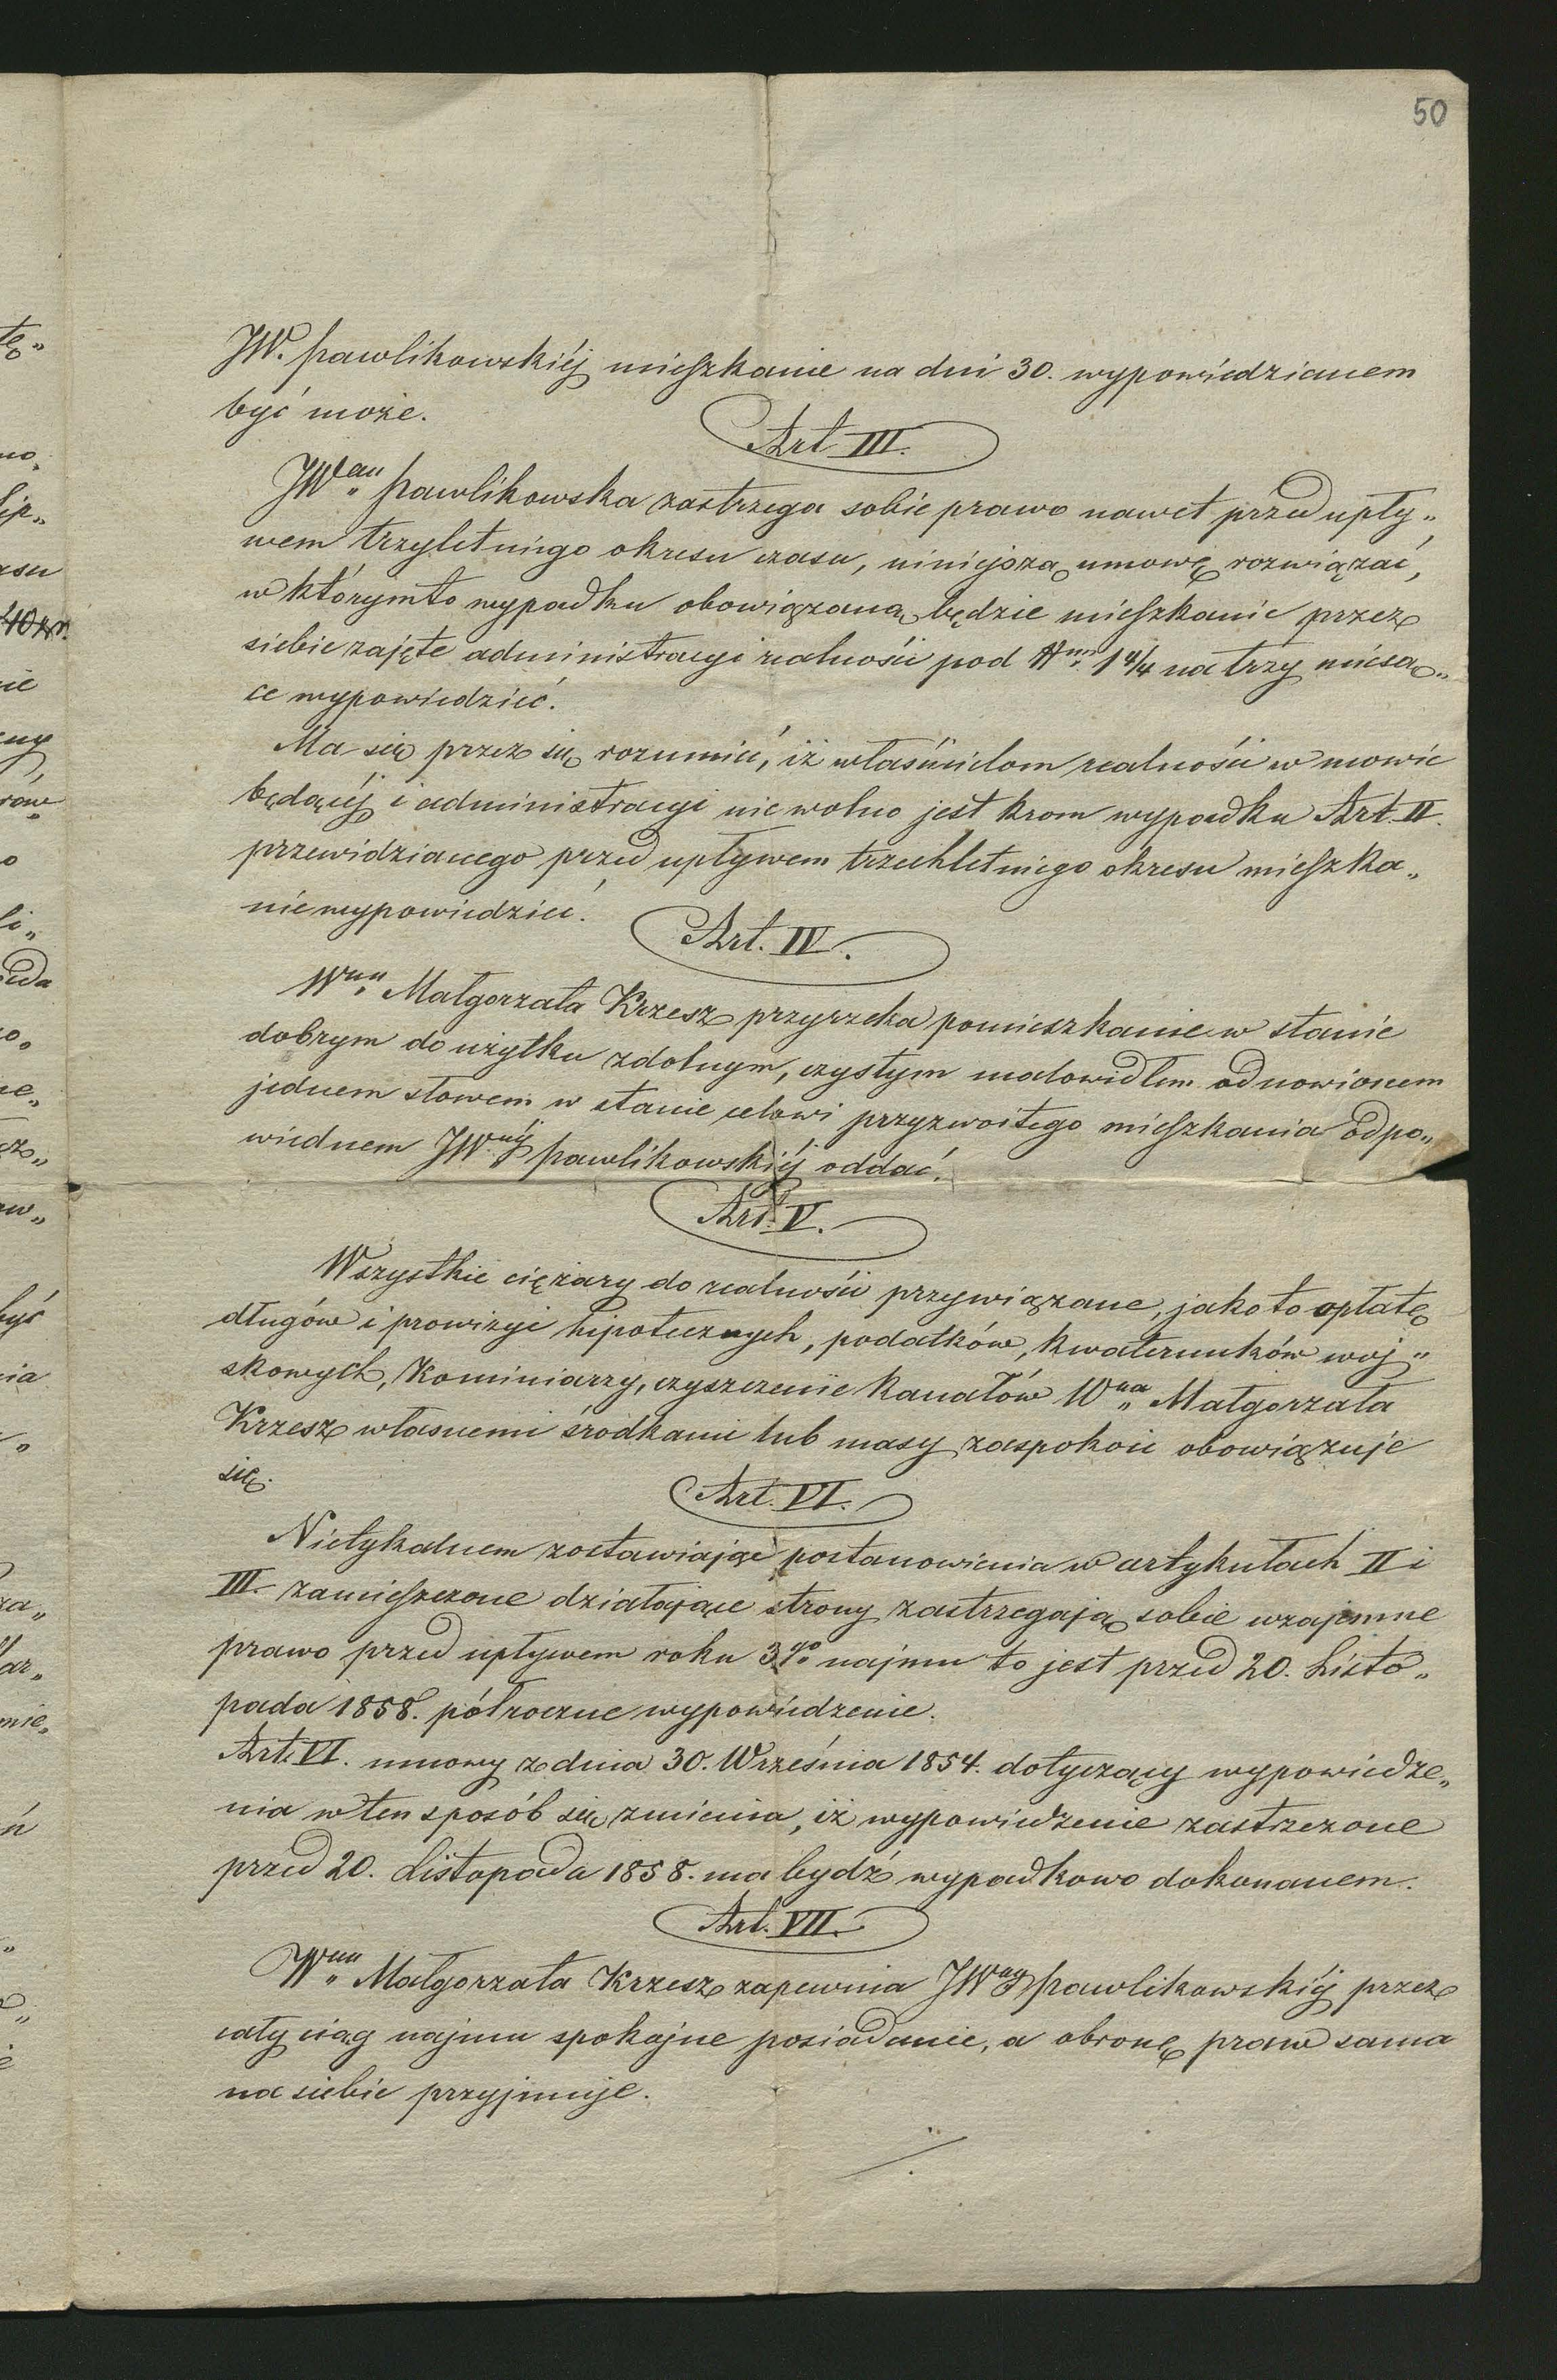 50
JW. Pawlikowskiéj mieszkanie na dni 30. wypowiedzianem
być może.
Art III.
JW Pawlikowska zastrzega sobie prawo nawet przed upły„
wem trzyletniego okresu czasu, niniejszą umowę rozwiązać,
w którymto wypadku obowiązaną będzie mieszkanie przez
siebie zajęte administracyi realności pod 1 4/4 na trzy miesią„
ce wypowiedzieć.
Ma się przez się rozumieć, iż właścicielom realności w mowie
będącéj i administracyi nie wolno jest krom wypadku Art. II.
przewidzianego przed upływem trzechletniego okresu mieszka„
nie wypowiedzieć.
Art. IV.
Wna Małgorzata Krzesz przyrzeka pomieszkanie w stanie
dobrym do użytku zdolnym, czystym malowidłem odnowionem
jednem słowem w stanie celowi przyzwoitego mieszkania odpo„
wiednem JWnéj Pawlikowskiéj oddać.
Art. V.
Wszystkie ciężary do realności przywiązane, jako to opłatę
długów i prowizyi hipotecznych, podatków, kwaterunków woj„
skowych, Kominiarzy, czyszczenie kanałów Wna Małgorzata
Krzesz własnemi środkami lub masy zaspokoić obowiązuje
się.
Art. VI.
Nietykalnem zostawiając postanowienia w artykułach II i
III. zamieszczone działające strony zastrzegają sobie wzajemne
prawo przed upływem roku 3go najmu to jest przed 20. Listo„
pada 1858. półroczne wypowiedzenie.
Art. VI. umowy z dnia 30. Września 1854. dotyczący wypowiedze„
nia w ten sposób się zmienia, iż wypowiedzenie zastrzeżone
przed 20. Listopada 1858. ma bydź wypadkowo dokonanem.
Art. VII.
Wna Małgorzata Krzesz zapewnia JWnéj Pawlikowskiéj przez
cały ciąg najmu spokojne posiadanie, a obronę praw sama
na siebie przyjmuje.